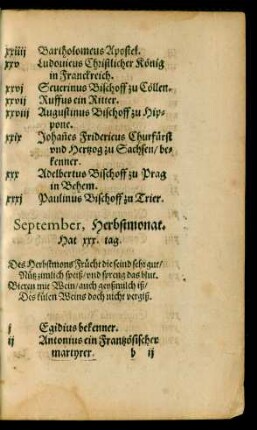 xxiiij Bartholomeus Apostel.
xxv Ludouicus Christlicher König
in Franckreich.
xxvj Seuerinus Bischoff zu Cöllen.
xxvij Ruffus ein Ritter.
xxviij Augustinus Bischoff zu Hip-
pone.
xxix Johañes Fridericus Churfürst
vnd Hertzog zu Sachsen/ be-
kenner.
xxx Adelbertus Bischoff zu Prag
in Behem.
xxxj Paulinus Bischoff zu Trier.
September, Herbstmonat.
Hat xxx. tag.
Des Herbstmons Frücht die seind sehr gut/
Nütz zimlich speiß/ vnd spreng das blut.
Bieren mit Wein/ auch genßmilch iß/
Des külen Weins doch nicht vergiß.
j Egidius bekenner.
ij Antonius ein Frantzösischer
martyrer. b ij